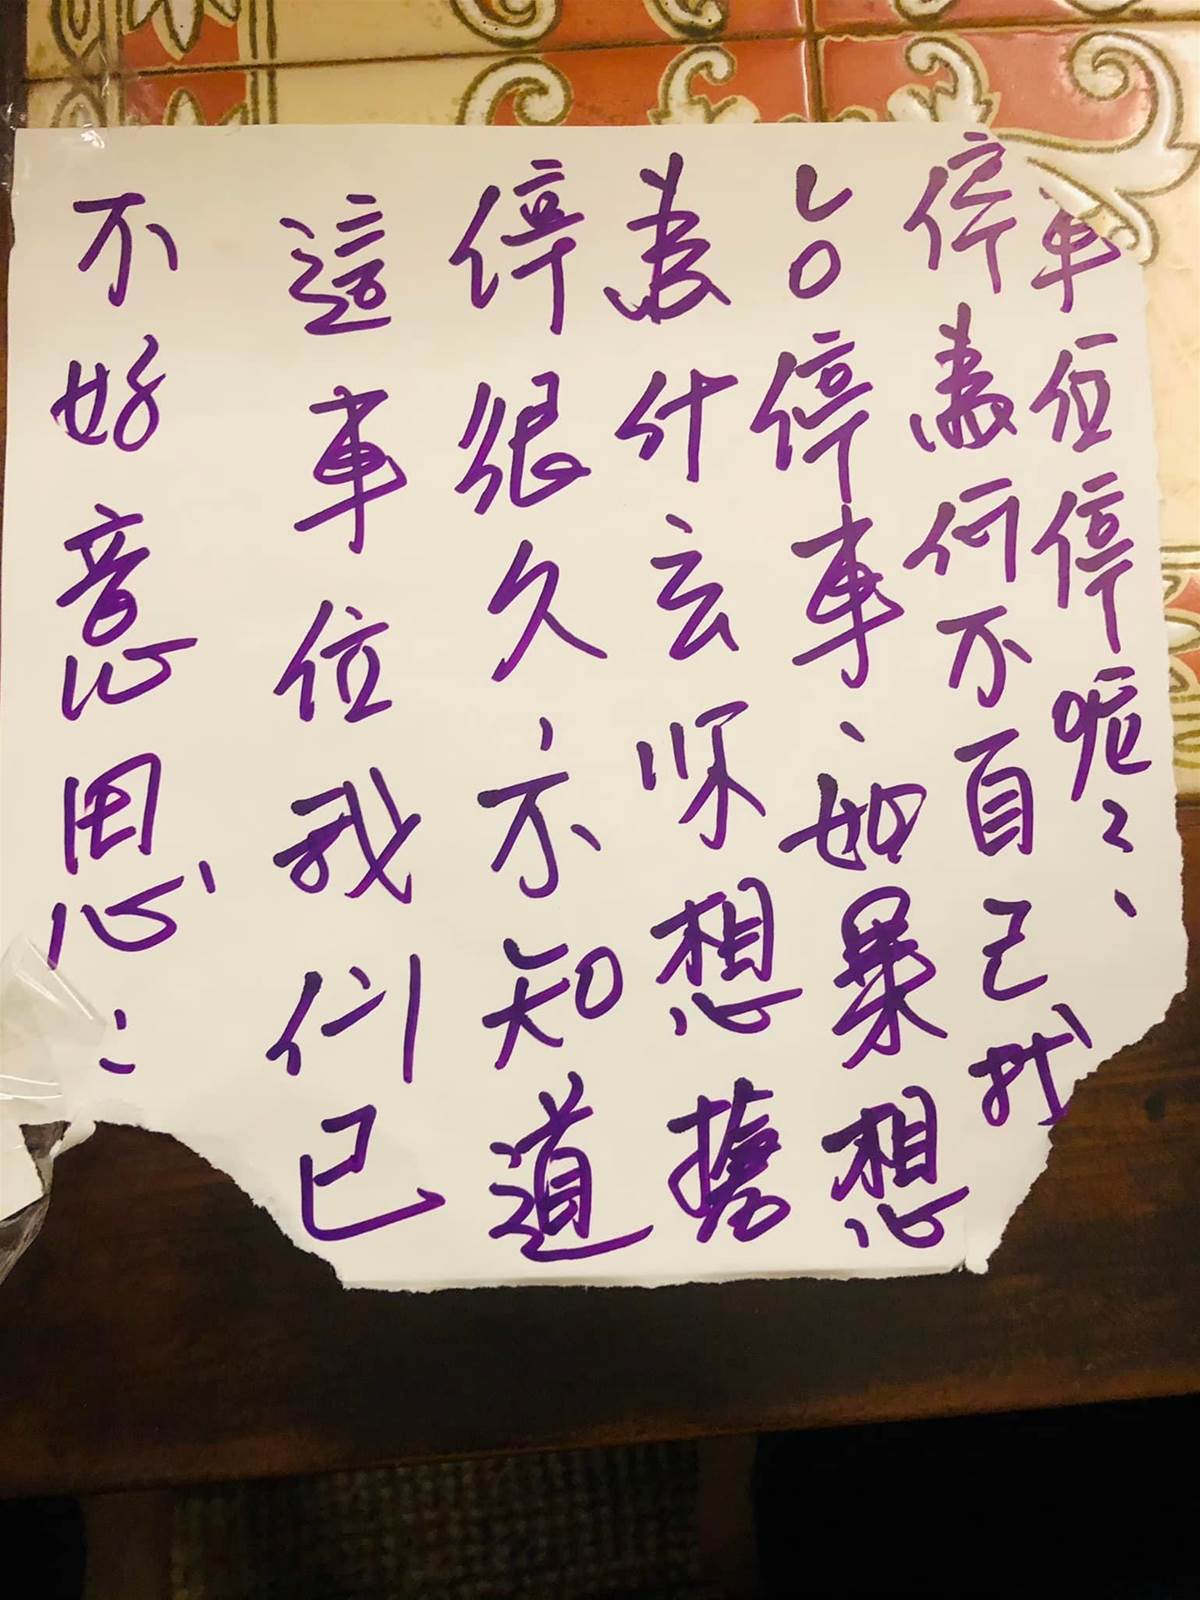 不好意思:
這車位我们已
停很久,不知道
為什么你想搶
占停車、如果想
停為何不自己找
車位停呢??、